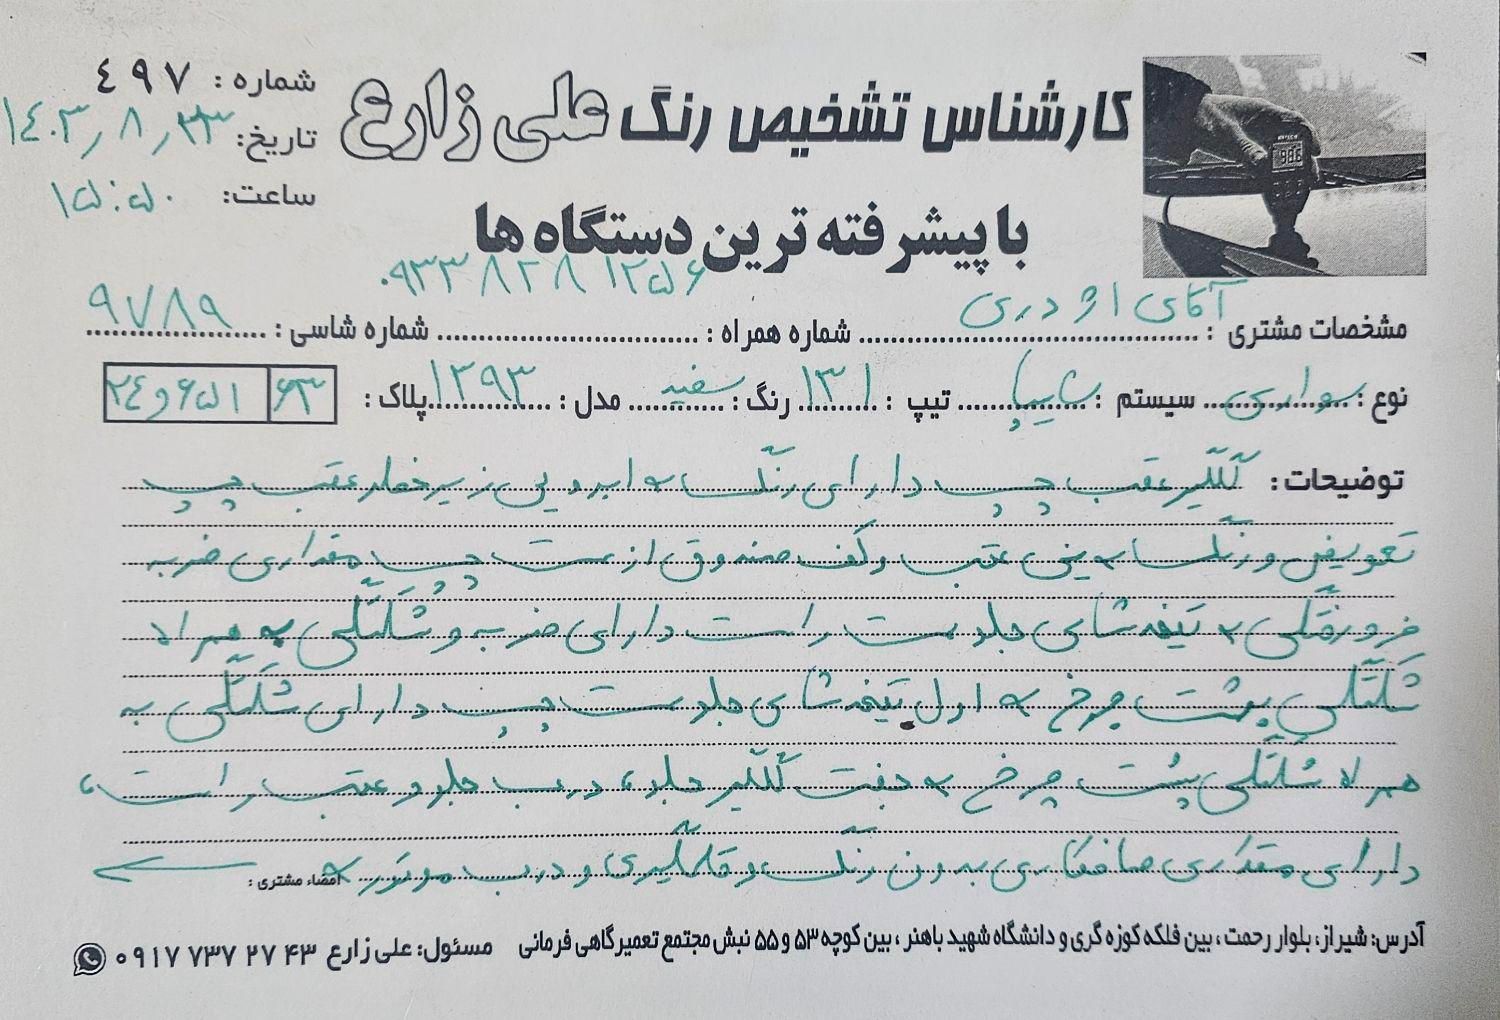 کارشناس تشخیص رنگ علی زارع
با پیشرفته ترین دستگاه ها
شماره : ۴۹۷
تاریخ: ۱۴۰۳/۸/۲۳
ساعت: ۱۵:۵۰
مشخصات مشتری : آقای اژدری شماره همراه : ۰۹۳۳۸۲۸۱۲۵۶ شماره شاسی : ۹۷۸۹
نوع : سواری سیستم : سایپا تیپ : ۱۳۱ رنگ : سفید مدل : ۱۳۹۳ پلاک : ۲۴و۶۵۱ ۶۳
توضیحات : گلگیر عقب چپ دارای رنگ ـ ابرویی زیر خطر عقب چپ
تعویض و رنگ ـ سینی عقب و کف صندوق از سمت چپ مقداری ضربه
فرورفتگی ـ تیغه شاسی جلو سمت راست دارای ضربه و شکستگی به همراه
شکستگی پشت چرخ ـ اول تیغه شاسی جلو سمت چپ دارای شکستگی به
همراه شکستگی پشت چرخ ـ جفت گلگیر جلو، درب جلو و عقب راست،
دارای مقداری صافکاری بدون رنگ و قلمگیری و درب موتور ـ
امضاء مشتری :
آدرس: شیراز، بلوار رحمت ، بین فلکه کوزه گری و دانشگاه شهید باهنر ، بین کوچه ۵۳ و ۵۵ نبش مجتمع تعمیرگاهی فرمانی مسئول: علی زارع ۰۹۱۷ ۷۳۷ ۲۷ ۴۳